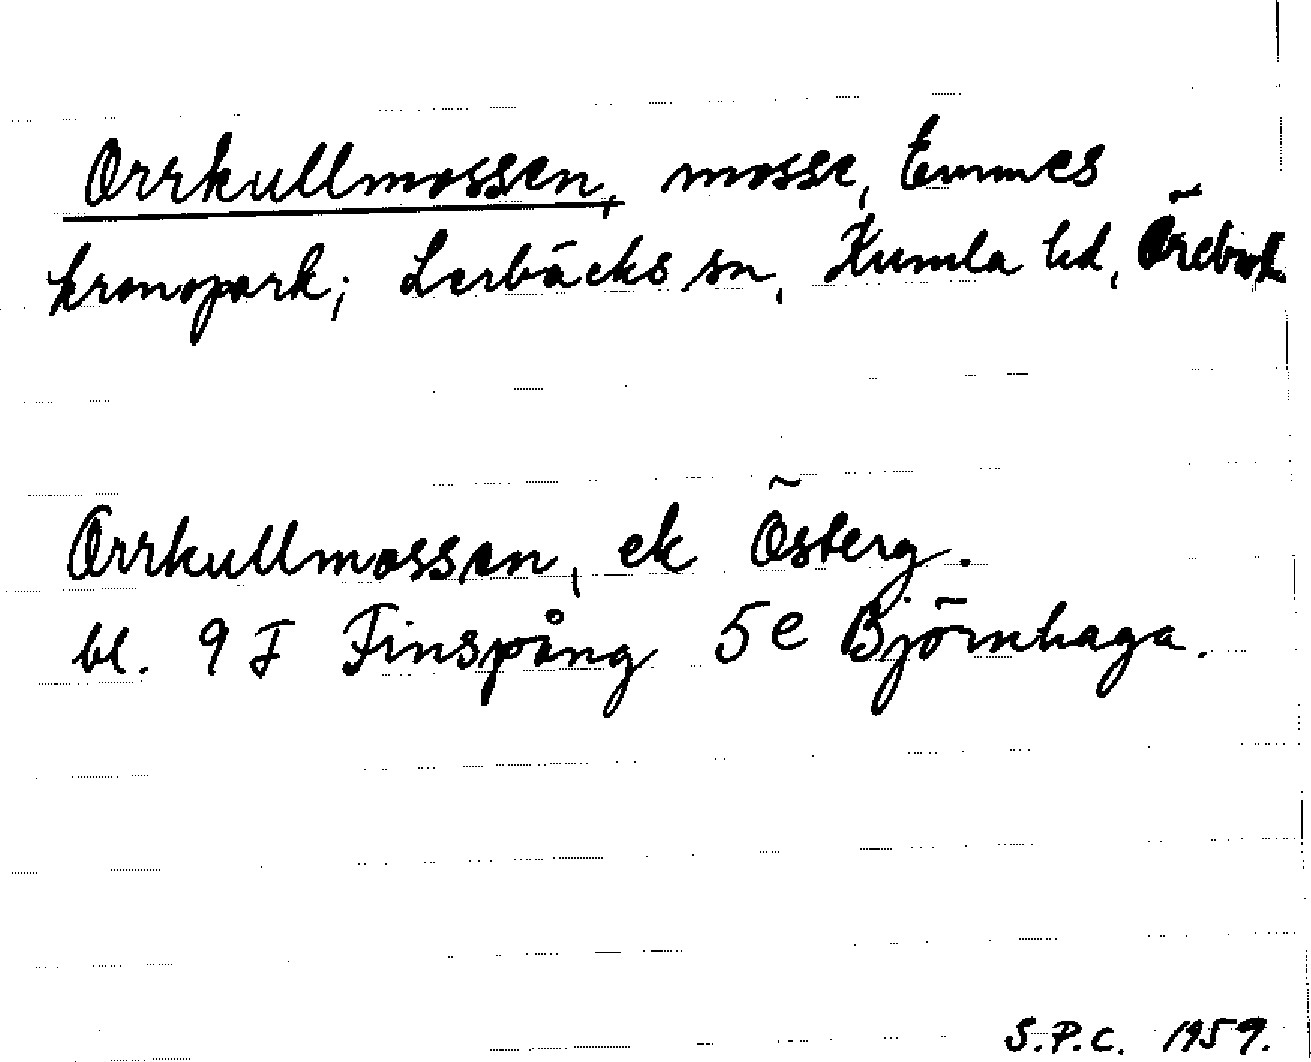 Orrkullmossen, mosse, Emmes
kronopark; Lerbäcks sn, Kumla hd, Örebro
Orrkullmossen, ek Österg.
bl. 9 F Finspång 5 e Björnhaga.
S.P.C. 1959.